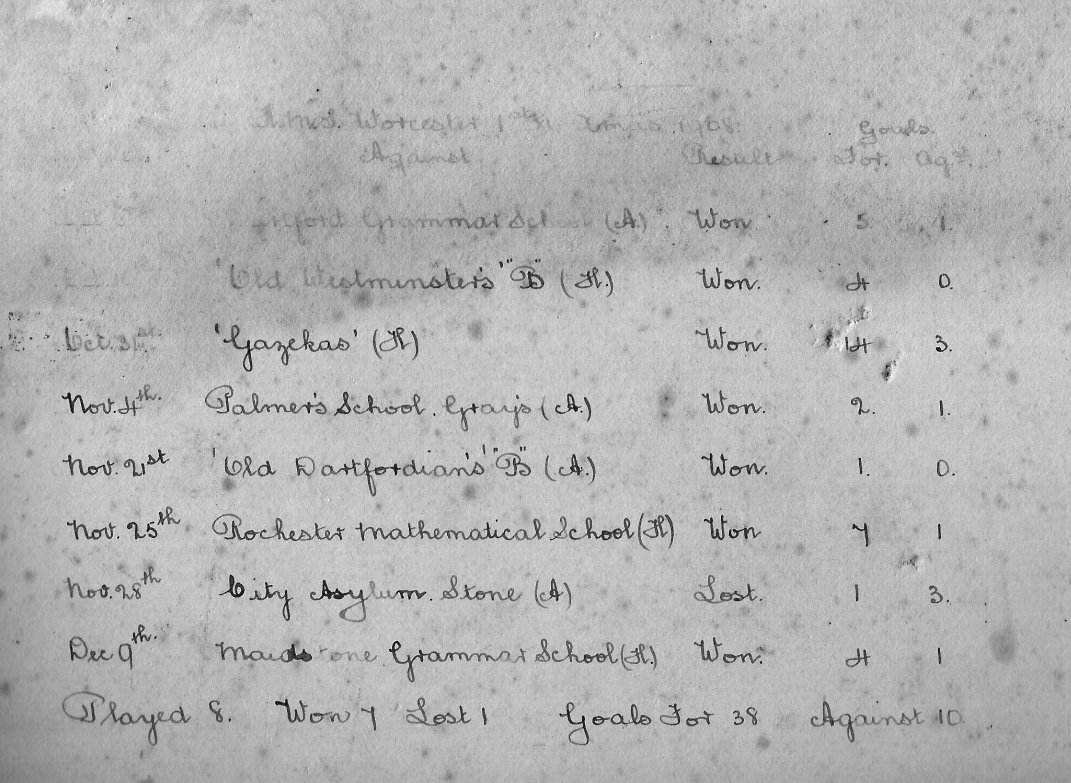 Worcester 1st XI. Xmas 1908. Goals.
Against Result For. Agst.
Grammar School (A) Won 5 1.
'Old Westminster's' "B" (H.) Won. 4 0.
Oct. 31st 'Gazekas' (H) Won. 14 3.
Nov. 4th. Palmer's School. Grays (A.) Won. 2. 1.
Nov. 21st 'Old Dartfordian's' "B" (A.) Won. 1. 0.
Nov. 25th Rochester Mathematical School (H) Won 7 1
Nov. 28th City Asylum. Stone (A) Lost. 1 3.
Dec 9th. Maidstone Grammar School (H.) Won. 4 1
Played 8. Won 7 Lost 1 Goals For 38 Against 10.